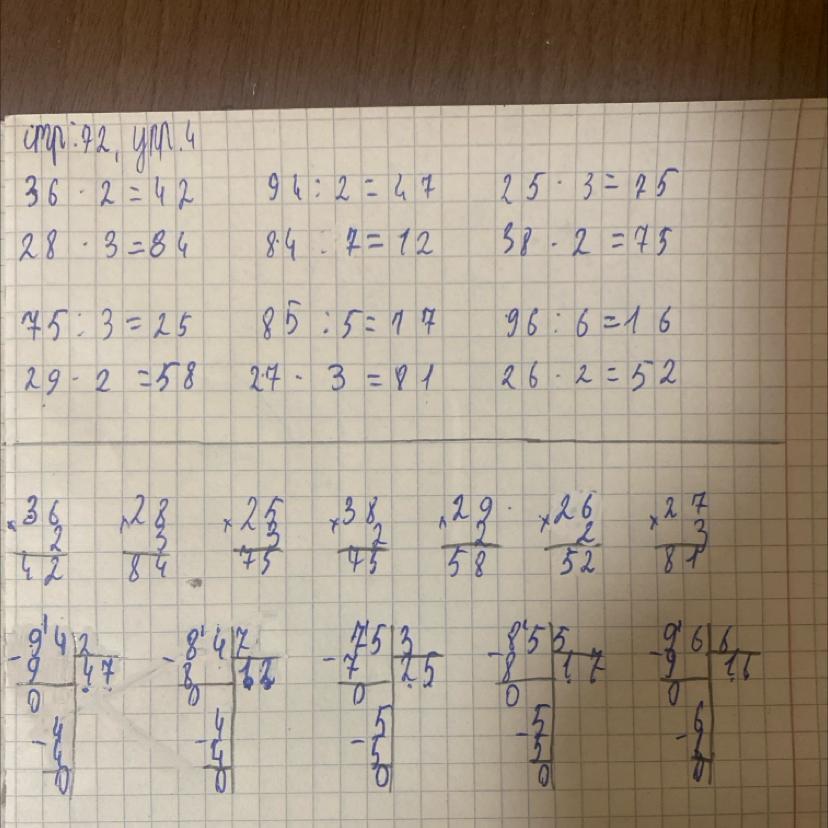 стр. 72, упр. 4
36 · 2 = 42 94 : 2 = 47 25 · 3 = 75
28 · 3 = 84 84 : 7 = 12 38 · 2 = 75
75 : 3 = 25 85 : 5 = 17 96 : 6 = 16
29 · 2 = 58 27 · 3 = 81 26 · 2 = 52
× 36 × 28 × 25 × 38 × 29 × 26 × 27
2 3 3 2 2 2 3
42 84 75 75 58 52 81
94 2 84 7 75 3 85 5 96 6
- 9 47 - 8 12 - 7 25 - 8 17 - 9 16
0 0 0 0 0
4 4 5 5 6
- 4 - 4 - 5 - 5 -
0 0 0 0 0